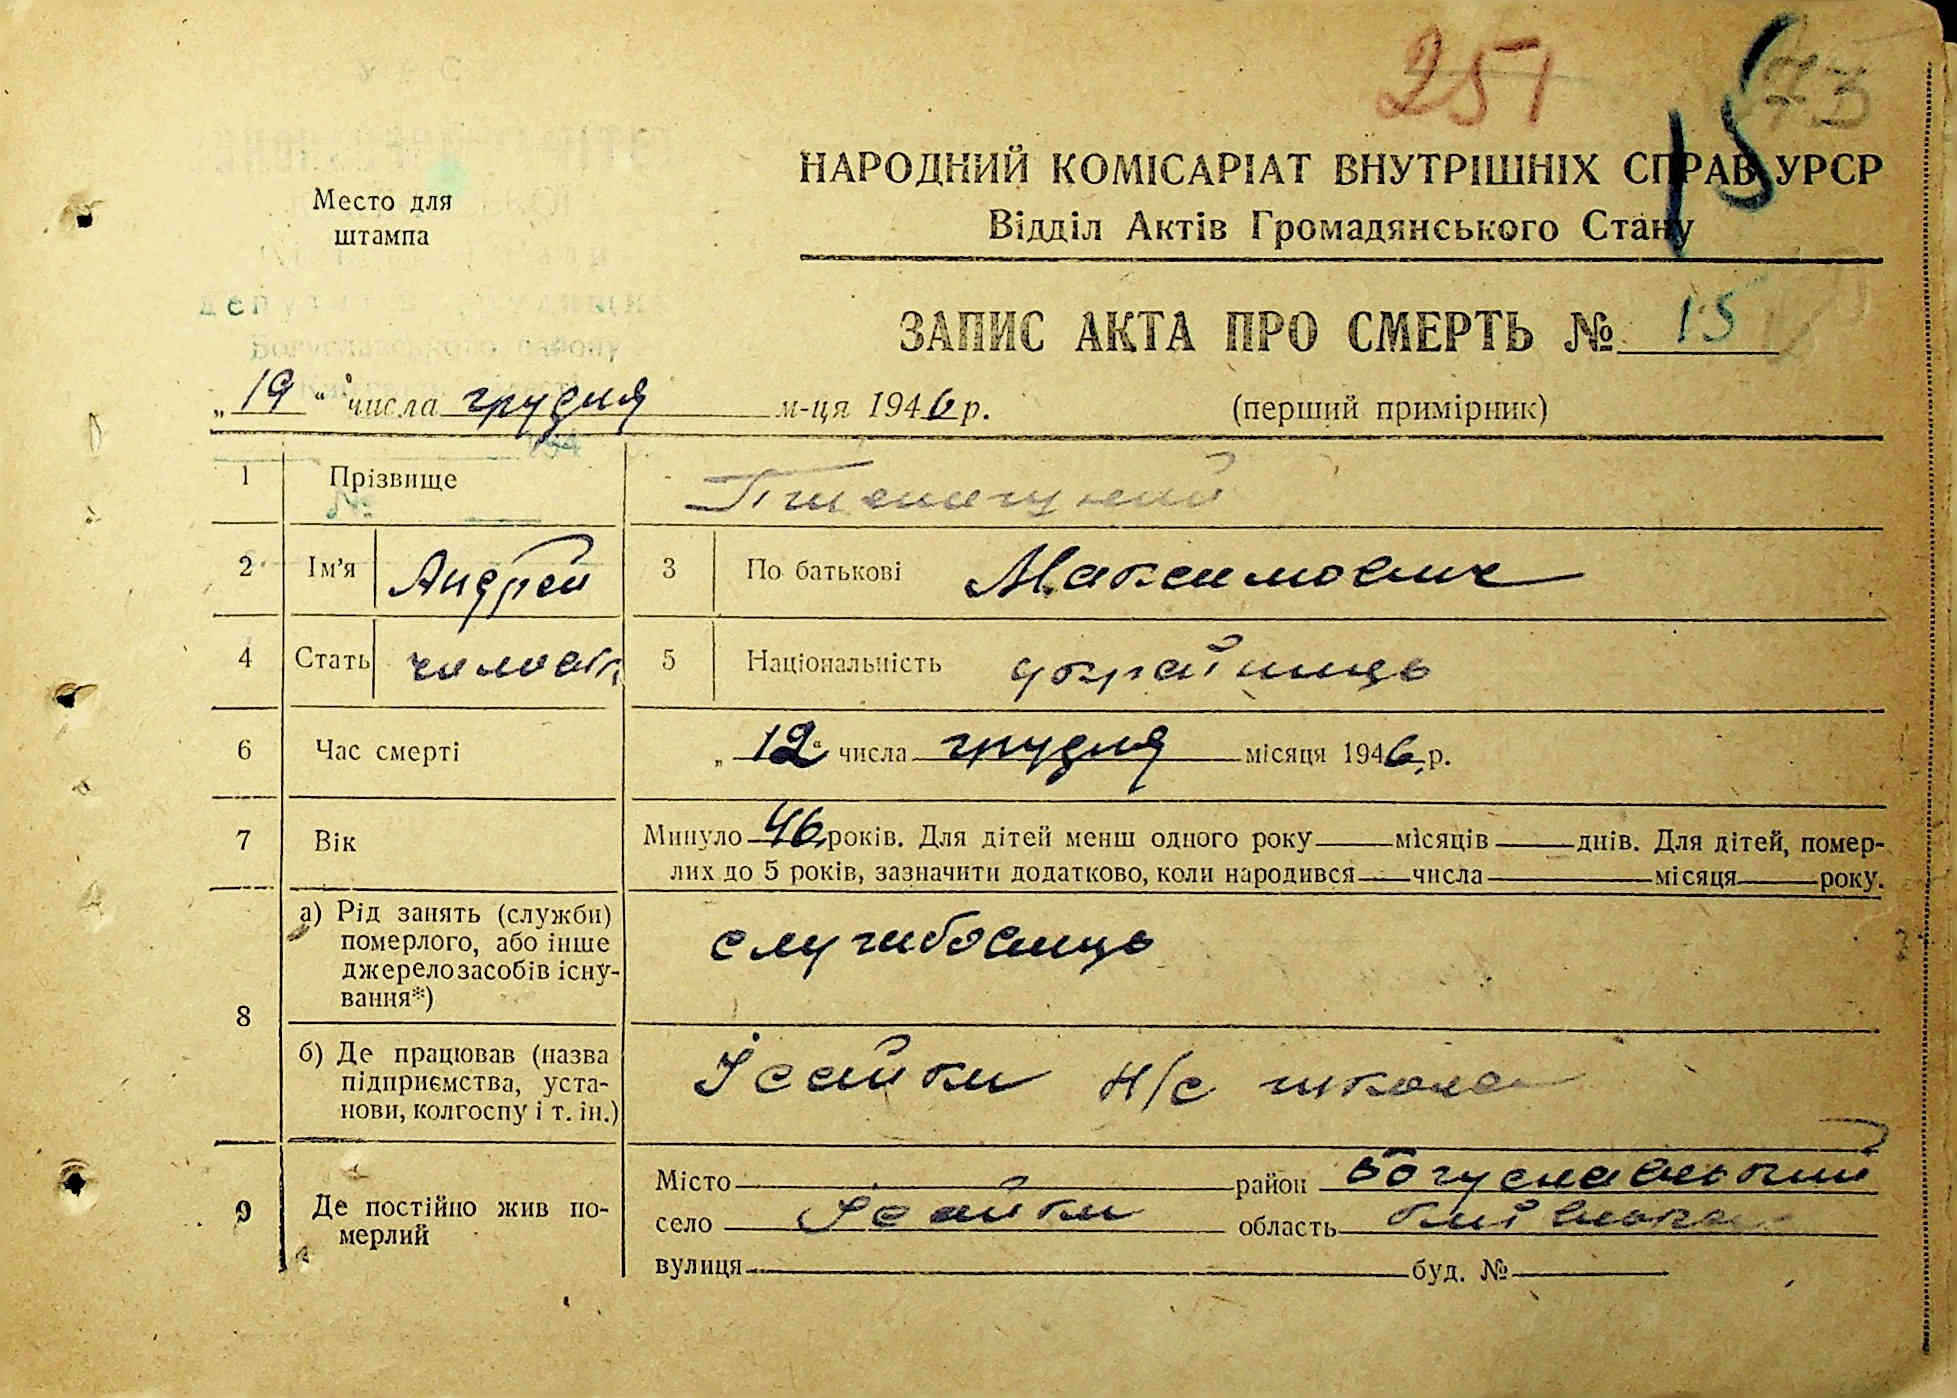 251
73
15
Место для
штампа
НАРОДНИЙ КОМІСАРІАТ ВНУТРІШНІХ СПРАВ УРСР
Відділ Актів Громадянського Стану
ЗАПИС АКТА ПРО СМЕРТЬ № 15
„19“ числа грудня м-ця 1946 р.
(перший примірник)
1 Прізвище
2 Ім’я Андрей 3 По батькові Максимович
4 Стать чоловіч 5 Національність українець
6 Час смерті „12“ числа грудня місяця 1946 р.
7 Вік Минуло 46 років. Для дітей менш одного року місяців днів. Для дітей, помер-
лих до 5 років, зазначити додатково, коли народився числа місяця року.
8 а) Рід занять (служби)
померлого, або інше
джерело засобів існу-
вання*)
службовець
б) Де працював (назва
підприємства, уста-
нови, колгоспу і т. ін.)
Ісайки н/с школа
9 Де постійно жив по-
мерлий
Місто район Богуславський
село Ісайки область київська
вулиця буд. №